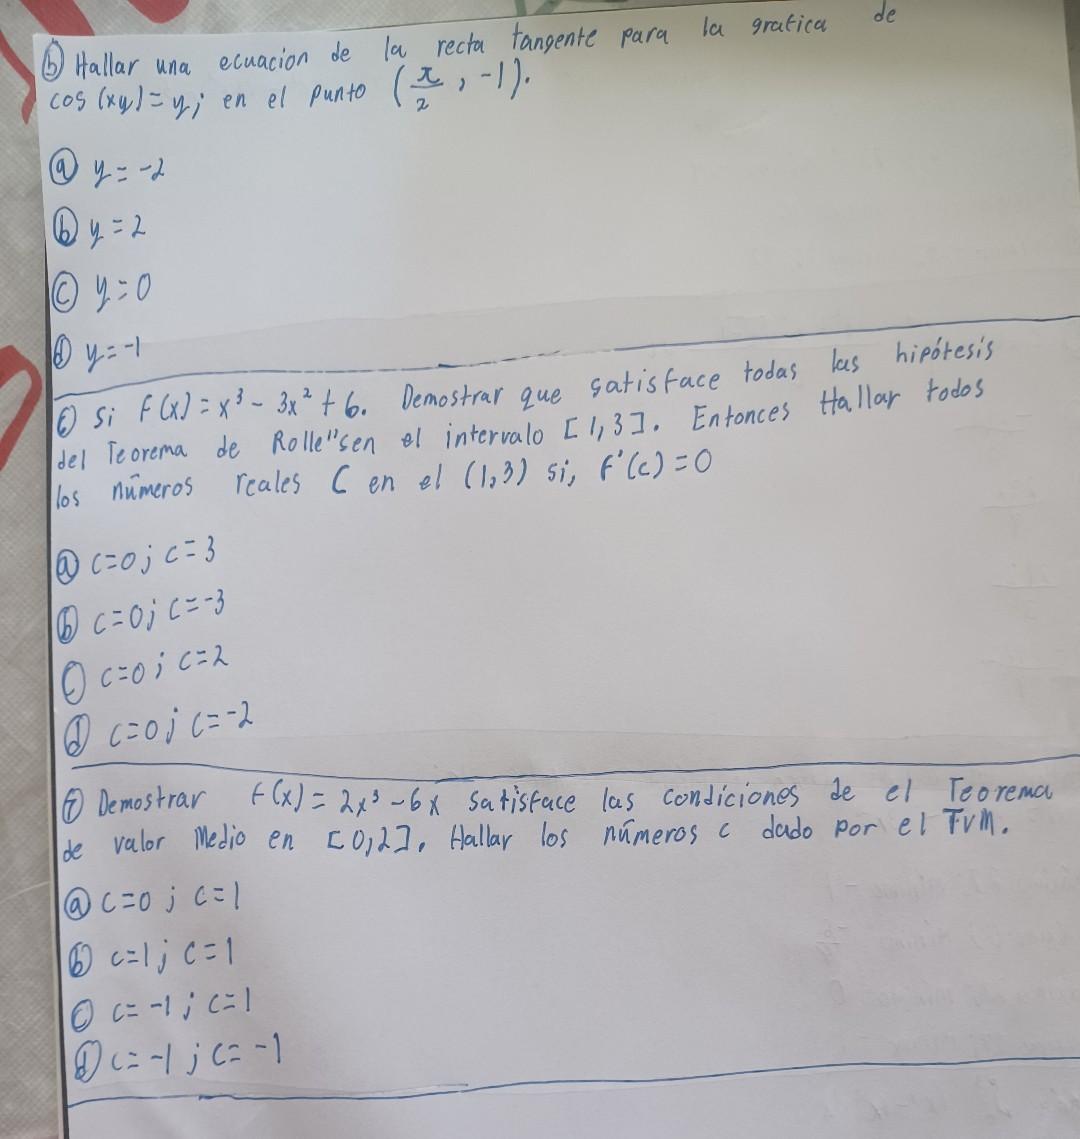 ⑤ Hallar una ecuacion de la recta tangente para la grafica de
cos(xy)=y; en el punto (π/2, -1).
ⓐ y=-2
ⓑ y=2
ⓒ y=0
ⓓ y=-1
⑥ Si f(x)=x³-3x²+6. Demostrar que satisface todas las hipótesis
del Teorema de Rolle"sen el intervalo [1,3]. Entonces Hallar todos
los números reales C en el (1,3) si, f'(c)=0
ⓐ c=0; c=3
ⓑ c=0; c=-3
ⓒ c=0; c=2
ⓓ c=0; c=-2
⑦ Demostrar f(x)=2x³-6x satisface las condiciones de el Teorema
de valor Medio en [0,2]. Hallar los números c dado por el TVM.
ⓐ c=0; c=1
ⓑ c=1; c=1
ⓒ c=-1; c=1
ⓓ c=-1; c=-1